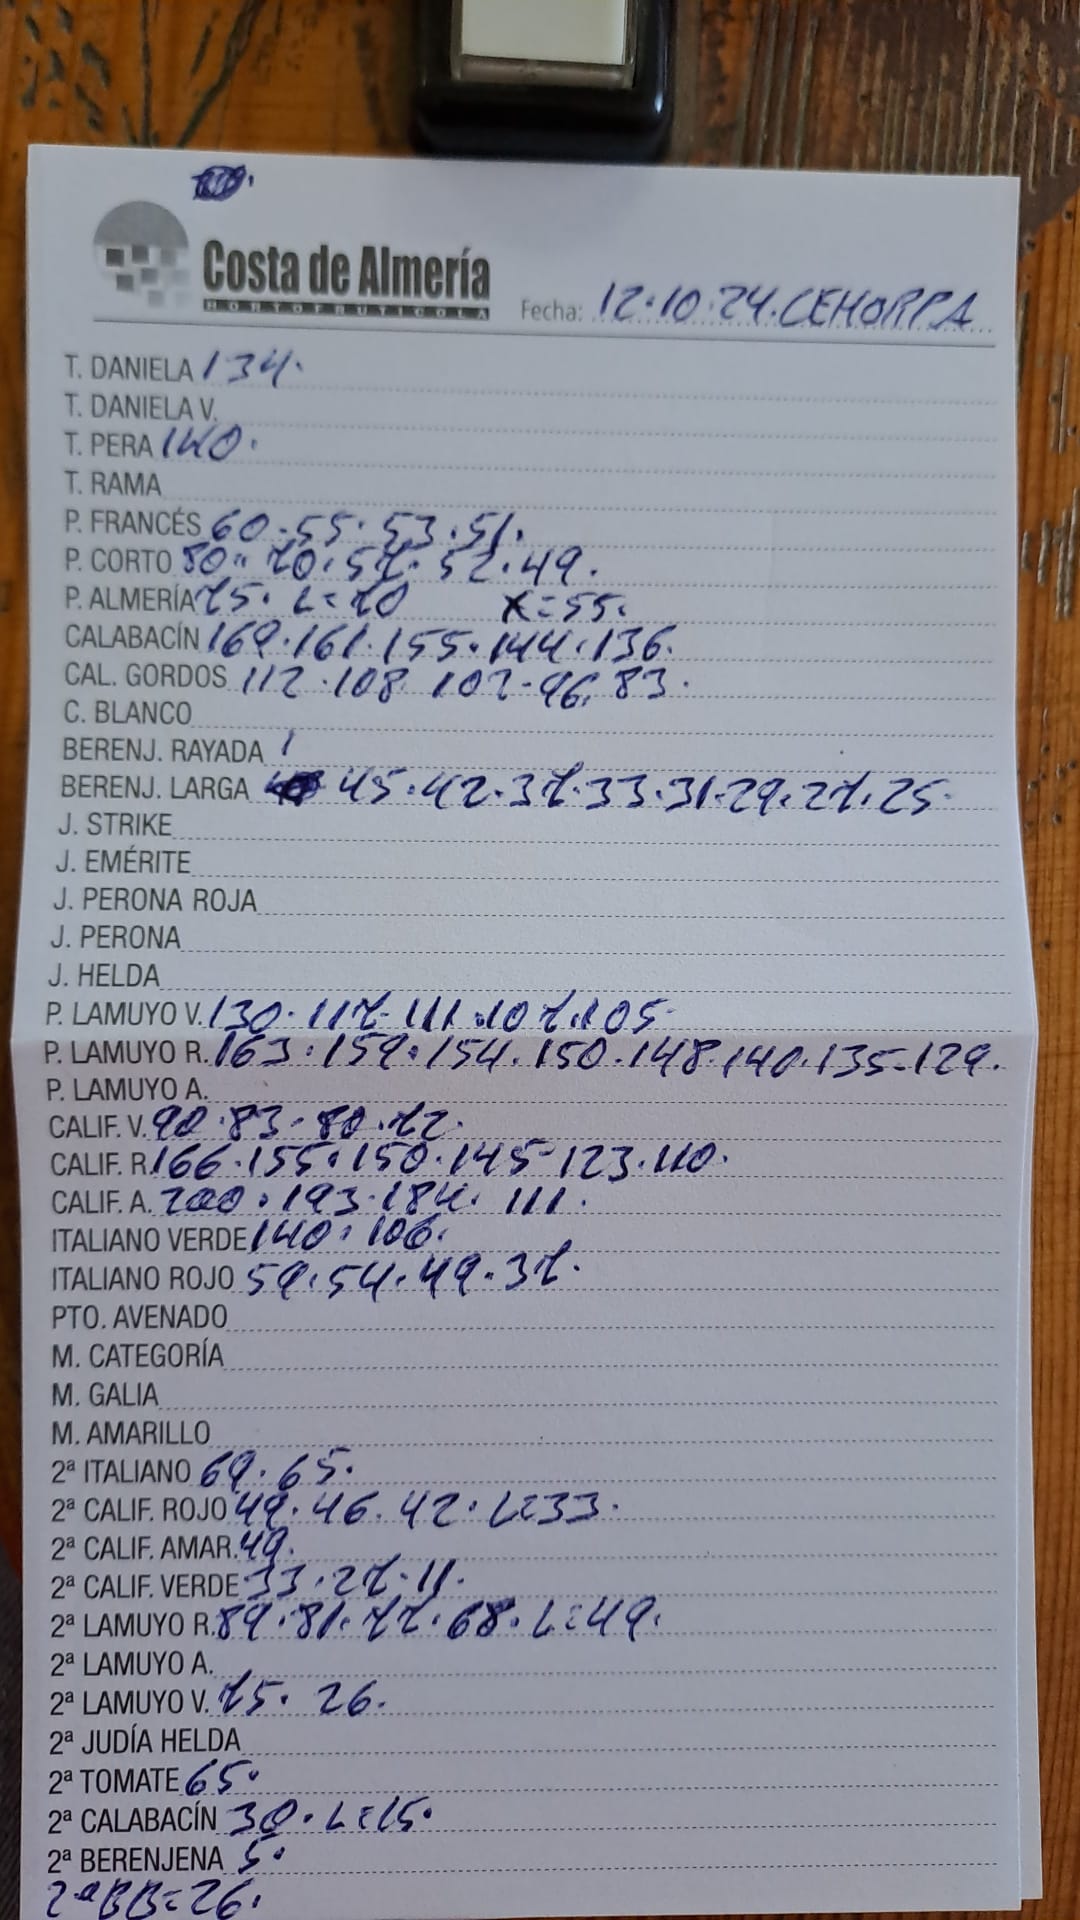 Costa de Almería
HORTOFRUTICOLA
Fecha: 12.10.24.CEHORPA
T. DANIELA 134.
T. DANIELA V.
T. PERA 140.
T. RAMA
P. FRANCÉS 60.55.53.51.
P. CORTO 80.. 70.57.52.49.
P. ALMERÍA 75. L=70 X=55.
CALABACÍN 169.161.155.144.136.
CAL. GORDOS 112.108.102.96.83.
C. BLANCO
BERENJ. RAYADA 1
BERENJ. LARGA 45.42.37.33.31.29.27.25.
J. STRIKE
J. EMÉRITE
J. PERONA ROJA
J. PERONA
J. HELDA
P. LAMUYO V. 130.117.111.107.105.
P. LAMUYO R. 163.159.154.150.148.140.135.129.
P. LAMUYO A.
CALIF. V. 90.83.80.72.
CALIF. R. 166.155.150.145.123.110.
CALIF. A. 200.193.184. 111.
ITALIANO VERDE 140.106.
ITALIANO ROJO 59.54.49.37.
PTO. AVENADO
M. CATEGORÍA
M. GALIA
M. AMARILLO
2ª ITALIANO 69.65.
2ª CALIF. ROJO 49.46.42.L=33.
2ª CALIF. AMAR. 49.
2ª CALIF. VERDE 33.27.11.
2ª LAMUYO R. 89.81.77.68.L=49.
2ª LAMUYO A.
2ª LAMUYO V. 75. 26.
2ª JUDÍA HELDA
2ª TOMATE 65.
2ª CALABACÍN 30.L=15.
2ª BERENJENA 5.
2ª BB=26.